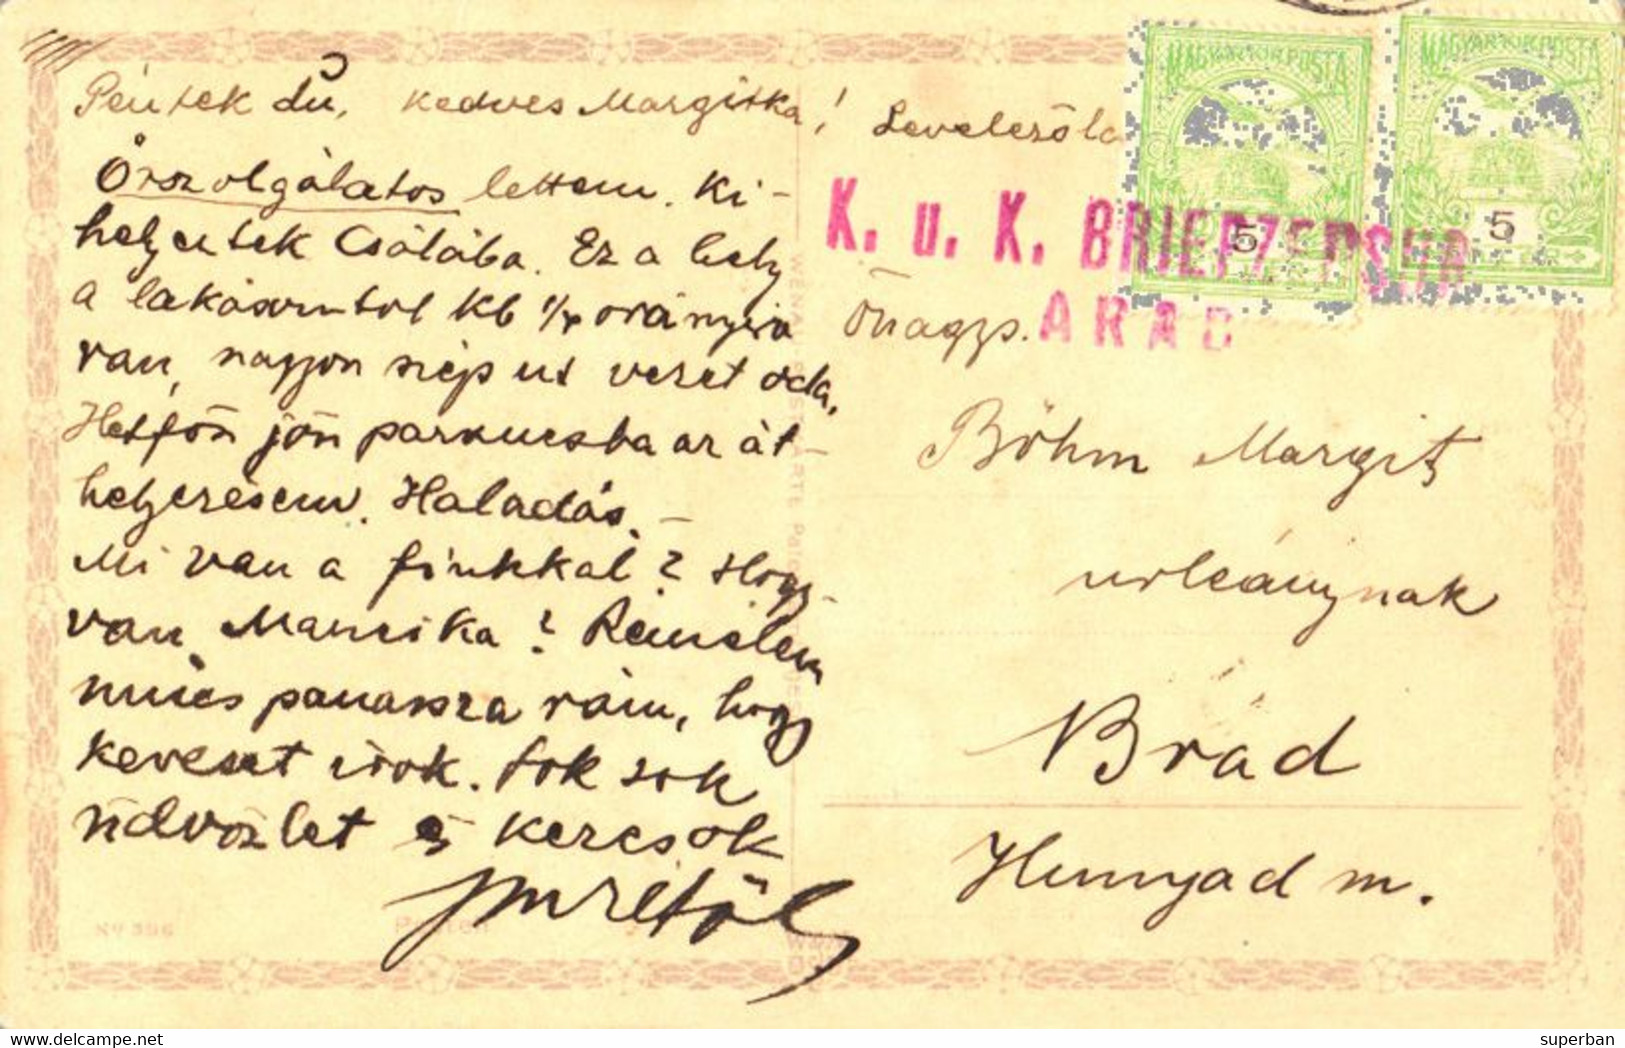 Péntek du, kedves Margitka!
Őrszolgálatos lettem. Ki-
helyeztek Csálába. Ez a hely
a lakásomtól kb 1/4 órányira
van, nagyon szép út vezet oda.
Hétfőn jön parancsba az át-
helyezésem. Haladás. -
Mi van a fiúkkal? Hogy
van Mancika? Remélem
nincs panasza rám, hogy
keveset írok. Sok sok
üdvözlet és kézcsók
Nº 396
MAGYAR KIR. POSTA
5
MAGYAR KIR. POSTA
5
K. u. K. BRIEFZENSUR
ARAD
Önagys.
Böhm Margit
urleánynak
Brád
Hunyad m.
delcampe.net
superban